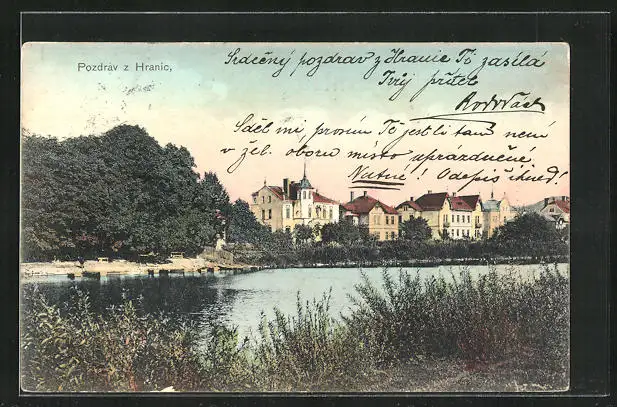 Pozdrav z Hranic,
Srdečný pozdrav z Hranic Tě zasílá
Tvůj přítel
Sděl mi, prosím Tě jestli tam není
v žel. oboru místo uprázdněné
Nutné! Odepiš ihned!